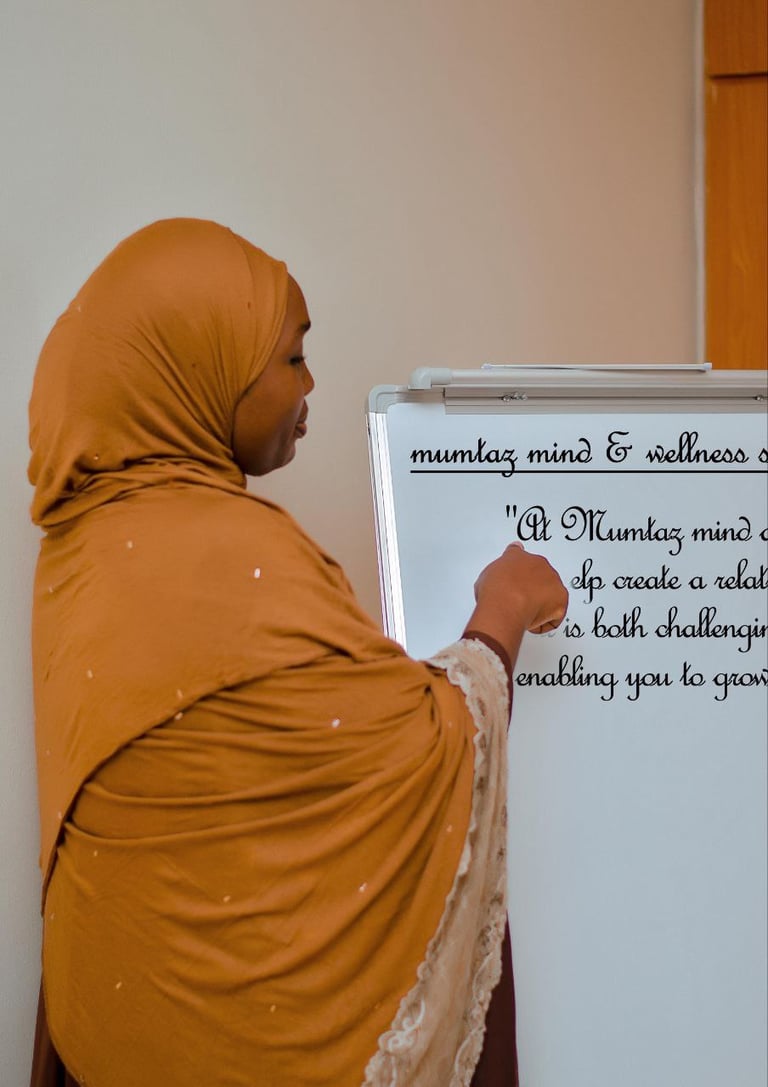 mumtaz mind & wellness s
"At Mumtaz mind
elp create a relat
is both challengin
enabling you to grow